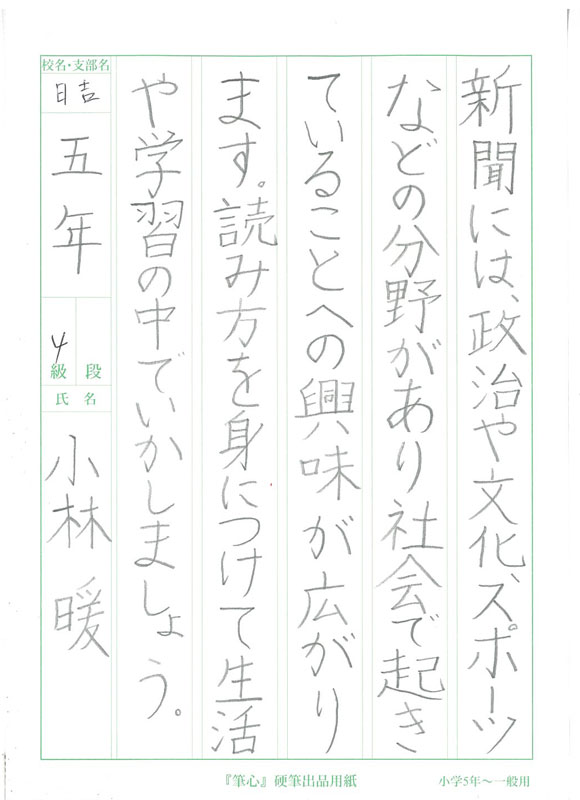 新聞には、政治や文化、スポーツ
などの分野があり社会で起き
ていることへの興味が広がり
ます。読み方を身につけて生活
や学習の中でいかしましょう。
校名・支部名
日吉
五年
4
級 段
氏名
小林 暖
『筆心』硬筆出品用紙
小学5年〜一般用